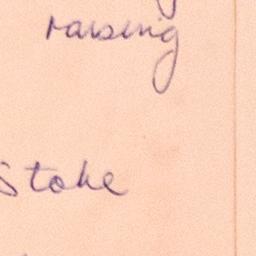 raising
Stoke